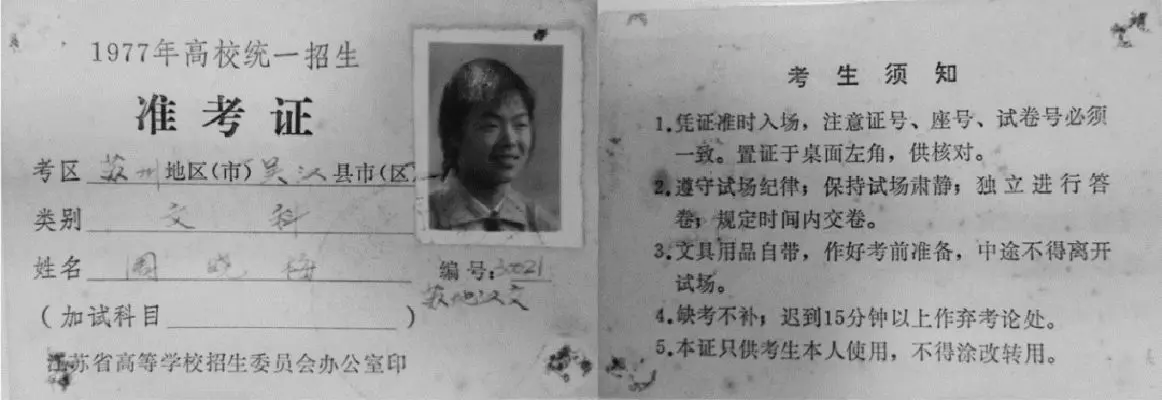 1977年高校统一招生
准考证
考区 苏州 地区(市) 吴江 县市(区)
类别 文科
姓名 周晓梅
编号:
(加试科目)
江苏省高等学校招生委员会办公室印
考生须知
1.凭证准时入场，注意证号、座号、试卷号必须
一致。置证于桌面左角，供核对。
2.遵守试场纪律；保持试场肃静；独立进行答
卷；规定时间内交卷。
3.文具用品自带，作好考前准备，中途不得离开
试场。
4.缺考不补；迟到15分钟以上作弃考论处。
5.本证只供考生本人使用，不得涂改转用。